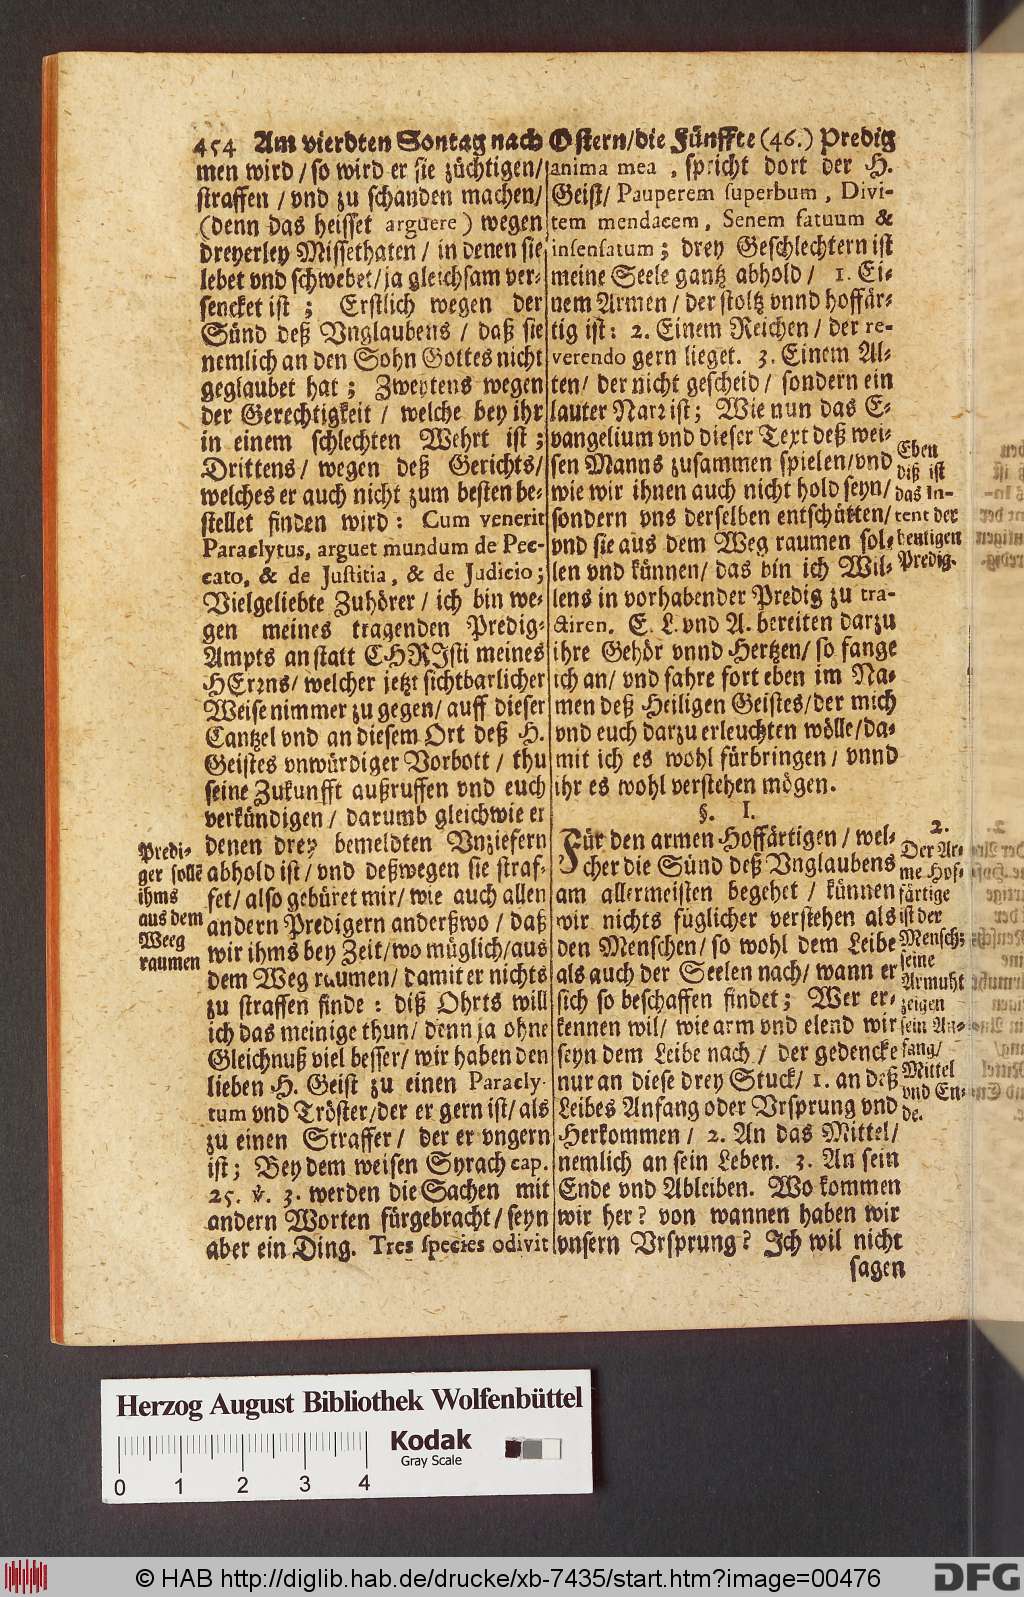 454 Am vierdten Sontag nach Ostern/die Fünffte (46.) Predig
men wird / so wird er sie züchtigen/
straffen / vnd zu schanden machen/
(denn das heisset arguere) wegen
dreyerley Missethaten / in denen sie
lebet vnd schwebet/ja gleichsam ver-
sencket ist ; Erstlich wegen der
Sünd deß Vnglaubens / daß sie
nemlich an den Sohn Gottes nicht
geglaubet hat ; Zweytens wegen
der Gerechtigkeit / welche bey ihr
in einem schlechten Wehrt ist ;
Drittens / wegen deß Gerichts/
welches er auch nicht zum besten be-
stellet finden wird : Cum venerit
Paraclytus, arguet mundum de Pec-
cato, & de Justitia, & de Judicio ;
Vielgeliebte Zuhörer / ich bin we-
gen meines tragenden Predig-
Ampts an statt CHRIsti meines
HErrns/ welcher jetzt sichtbarlicher
Weise nimmer zu gegen/ auff dieser
Cantzel vnd an diesem Ort deß H.
Geistes vnwürdiger Vorbott / thu
seine Zukunfft außruffen vnd euch
verkündigen / darumb gleichwie er
denen drey bemeldten Vnziefern
abhold ist/ vnd deßwegen sie straf-
fet/ also gebüret mir/ wie auch allen
andern Predigern anderßwo / daß
wir ihms bey Zeit/wo müglich/aus
dem Weg raumen/ damit er nichts
zu straffen finde : diß Ohrts will
ich das meinige thun/ denn ja ohne
Gleichnuß viel besser/ wir haben den
lieben H. Geist zu einen Paracly-
tum vnd Tröster/der er gern ist/ als
zu einen Straffer / der er vngern
ist ; Bey dem weisen Syrach cap.
25. ℣. 3. werden die Sachen mit
andern Worten fürgebracht / seyn
aber ein Ding. Tres species odivit
Predi-
ger sollē
ihms
aus dem
Weeg
raumen
anima mea , spricht dort der H.
Geist/ Pauperem superbum , Divi-
tem mendacem, Senem fatuum &
insensatum ; drey Geschlechtern ist
meine Seele gantz abhold / 1. Ei-
nem Armen / der stoltz vnnd hoffär-
tig ist : 2. Einem Reichen / der re-
verendo gern lieget. 3. Einem Al-
ten/ der nicht gescheid / sondern ein
lauter Narr ist ; Wie nun das E-
vangelium vnd dieser Text deß wei-
sen Manns zusammen spielen/vnd
wie wir ihnen auch nicht hold seyn/
sondern vns derselben entschütten/
vnd sie aus dem Weg raumen sol-
len vnd künnen/ das bin ich Wil-
lens in vorhabender Predig zu tra-
ctiren. E. L. vnd A. bereiten darzu
ihre Gehör vnnd Hertzen/ so fange
ich an/ vnd fahre fort eben im Na-
men deß Heiligen Geistes/der mich
vnd euch darzu erleuchten wölle/da-
mit ich es wohl fürbringen / vnnd
ihr es wohl verstehen mögen.
§. I.
Für den armen Hoffärtigen / wel-
cher die Sünd deß Vnglaubens
am allermeisten begehet / künnen
wir nichts füglicher verstehen als
den Menschen/ so wohl dem Leibe
als auch der Seelen nach/ wann er
sich so beschaffen findet ; Wer er-
kennen wil/ wie arm vnd elend wir
seyn dem Leibe nach / der gedencke
nur an diese drey Stuck/ 1. an deß
Leibes Anfang oder Vrsprung vnd
Herkommen / 2. An das Mittel/
nemlich an sein Leben. 3. An sein
Ende vnd Ableiben. Wo kommen
wir her? von wannen haben wir
vnsern Vrsprung? Ich wil nicht
sagen
Eben
diß ist
das In-
tent der
heutigen
Predig.
2.
Der Ar-
me Hof-
färtige
ist der
Mensch;
seine
Armuht
zeigen
sein An-
fang/
Mittel
vnd En-
de.
Herzog August Bibliothek Wolfenbüttel
Kodak
Gray Scale
0 1 2 3 4
© HAB http://diglib.hab.de/drucke/xb-7435/start.htm?image=00476
DFG